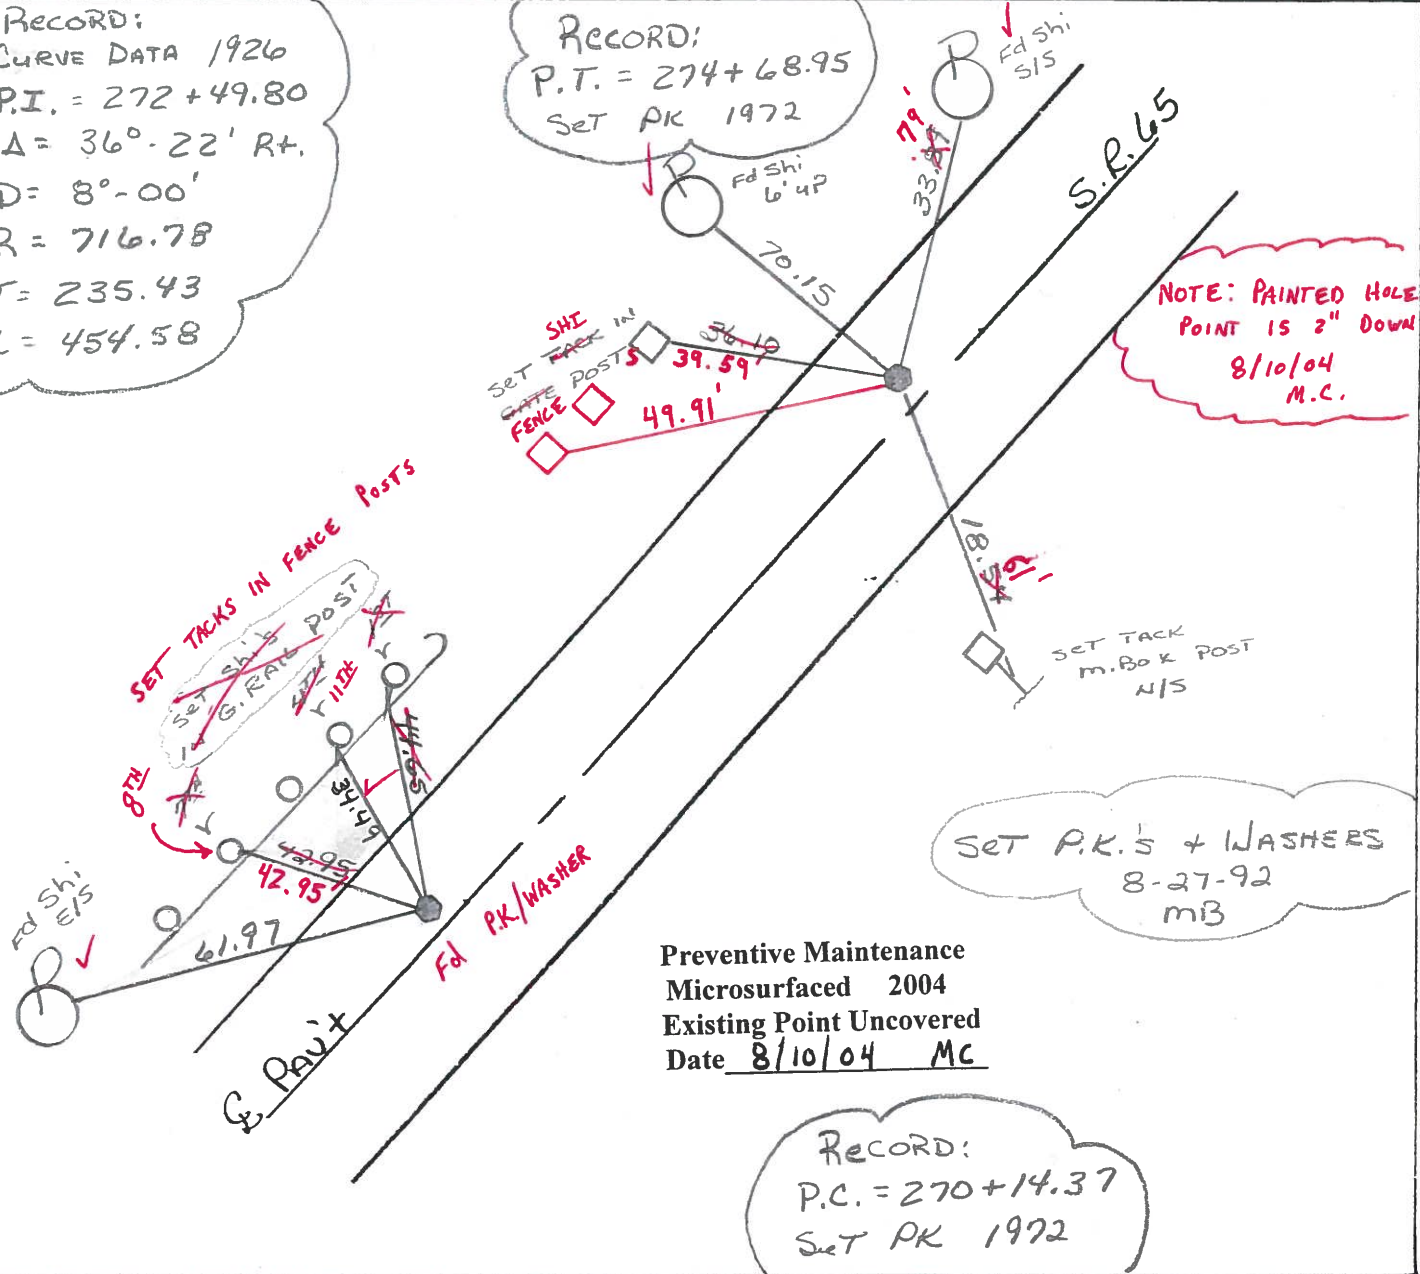 RECORD:
CURVE DATA 1926
P.I. = 272+49.80
Δ = 36°-22' Rt.
D = 8°-00'
R = 716.78
T = 235.43
L = 454.58
RECORD:
P.T. = 274+68.95
SET PK 1972
Fd Shi
S/S
79'
33.
Fd Shi
6' UP
70.15
S.R. 65
NOTE: PAINTED HOLE
POINT IS 2" DOWN
8/10/04
M.C.
SHI
SET TACK IN
GATE POSTS
FENCE
36.10
39.59'
49.91'
18.54
61'
SET TACK
M.BOX POST
N/S
SET TACKS IN FENCE POSTS
SET Shi's
IN G. RAIL POST
11TH
8TH
44.65
34.49
42.95
42.95'
61.97
Fd Shi
E/S
Fd P.K./WASHER
℄ PAV'T
SET P.K.'s + WASHERS
8-27-92
MB
Preventive Maintenance
Microsurfaced 2004
Existing Point Uncovered
Date 8/10/04 MC
RECORD:
P.C. = 270+14.37
SET PK 1972